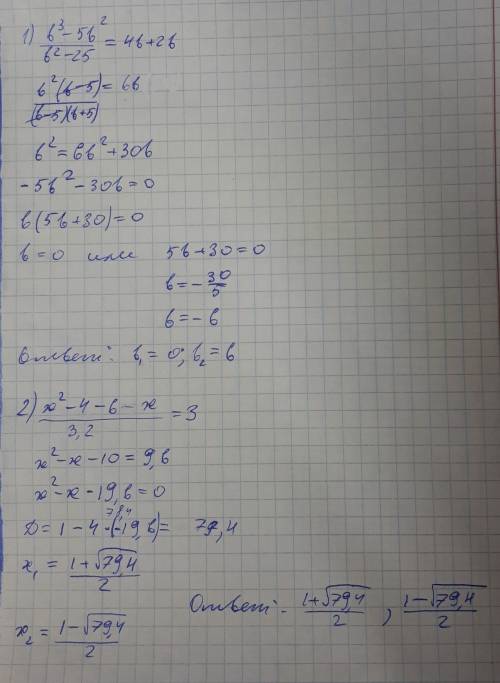 1) (b³ - 5b²)/(b² - 25) = 4b + 2b
b²(b-5)/((b-5)(b+5)) = 6b
b² = 6b² + 30b
-5b² - 30b = 0
b(5b + 30) = 0
b = 0 или 5b + 30 = 0
b = -30/5
b = -6
Ответ: b₁ = 0; b₂ = 6
2) (x² - 4 - 6 - x)/3,2 = 3
x² - x - 10 = 9,6
x² - x - 19,6 = 0
78,4
D = 1 - 4·(-19,6) = 79,4
x₁ = (1+√79,4)/2
Ответ: (1+√79,4)/2, (1-√79,4)/2
x₂ = (1-√79,4)/2